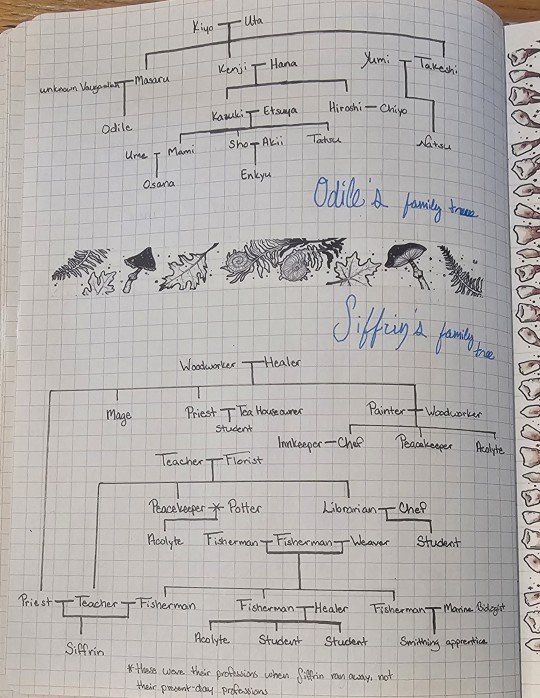 Kiyo Uta
Kenji Hana Yumi Takeshi
unknown Vaugardian Masaru
Kazuki Etsuya Hiroshi Chiyo
Odile
Ume Mami Sho Akii Tatsu Natsu
Osana Enkyu
Odile's family tree
Siffrin's family tree
Woodworker Healer
Mage Priest Tea House owner Painter Woodworker
Student
Innkeeper Chef Peacekeeper Acolyte
Teacher Florist
Peacekeeper * Potter Librarian Chef
Acolyte Fisherman Fisherman Weaver Student
Priest Teacher Fisherman Fisherman Healer Fisherman Marine Biologist
Acolyte Student Student Smithing apprentice
Siffrin
*these were their professions when Siffrin ran away, not
their present-day professions